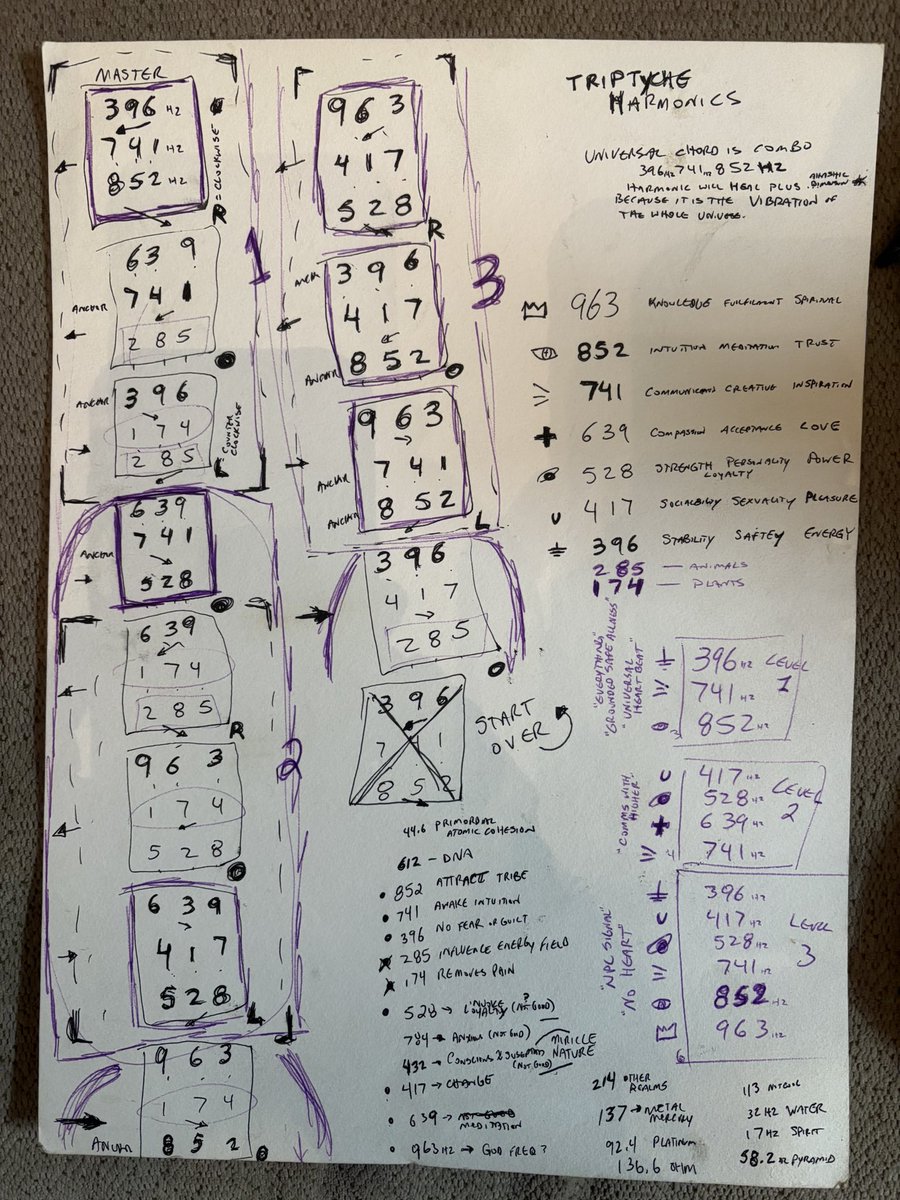 MASTER
396 HZ
741 HZ
852 HZ
R = CLOCKWISE
1
639
741
ANCHAR
285
ANCHAR
396
174
285
= COUNTER CLOCKWISE
639
741
ANCHAR
528
639
174
285
R
2
963
174
528
639
417
528
L
963
174
852
ANCHAR
963
417
528
R
3
396
417
852
ANCHAR
963
741
ANCHAR
852
ANCHAR
L
396
417
285
396
7 1
852
START
OVER
TRIPTYCHE
HARMONICS
UNIVERSAL CHORD IS COMBO
396HZ 741HZ 852 HZ
HARMONIC WILL HEAL PLUS
BECAUSE IT IS THE VIBRATION OF
THE WHOLE UNIVERSE.
963 KNOWLEDGE FULFILMENT
852 INTUITION MEDITATION TRUST
741 CREATIVE INSPIRATION
639 COMPASSION ACCEPTANCE LOVE
528 STRENGTH PERSONALITY POWER
LOYALTY
417 SOCIALBILITY SEXUALITY PLEASURE
396 STABILITY SAFTEY ENERGY
285 — ANIMALS
174 — PLANTS
"EVERYTHING"
"GROUNDED SAFE ALLNESS"
"UNIVERSAL HEART BEAT"
396 HZ
741 HZ
852 HZ
3
LEVEL
1
"COMMS WITH HIGHER"
417 HZ
528 HZ
639 HZ
741 HZ
4
LEVEL
2
"NPC SIGNAL"
"NO HEART"
396 HZ
417 HZ
528 HZ
741 HZ
852 HZ
963 HZ
6
LEVEL
3
44.6 PRIMORDIAL
ATOMIC COHESION
612 – DNA
852 ATTRACT TRIBE
741 AWAKE INTUITION
396 NO FEAR OR GUILT
285 INFLUENCE ENERGY FIELD
174 REMOVES PAIN
528 → INVOKE ?
LOYALTY (NOT GOOD)
784 → (NOT GOOD)
MIRICLE
NATURE
432 →
(NOT GOOD)
417 → CHANGE
639 → NOT GOOD
MEDITATION
963 HZ → GOD FREQ?
214 OTHER
REALMS
137 → METAL
MERCURY
92.4 PLATINUM
136.6 OHM
113
32 HZ WATER
17 HZ SPIRIT
58.2 HZ PYRAMID